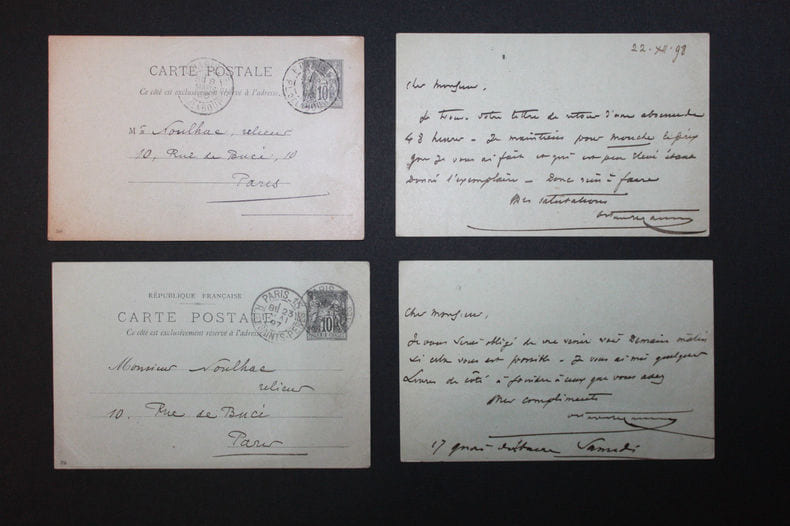 CARTE POSTALE
Ce côté est exclusivement réservé à l'adresse.
10
Mr Noulhac, relieur
10, Rue de Buci, 10
Paris
22 - XII - 98
Cher Monsieur,
Je trouve votre lettre de retour d'une absence de
48 heures - Je maintiens pour Mouche le prix
que je vous ai fait et qui est peu élevé étant
Donné l'exemplaire - Donc rien à faire
Mes salutations
RÉPUBLIQUE FRANÇAISE
CARTE POSTALE
Ce côté est exclusivement réservé à l'adresse.
PARIS
23
97
10
Monsieur Noulhac
relieur
10, Rue de Buci
Paris
Cher Monsieur,
Je vous serai obligé de me venir voir Demain matin
si cela vous est possible - Je vous ai mis quelques
Livres de côté à joindre à ceux que vous avez
Mes compliments
17 quai Samedi